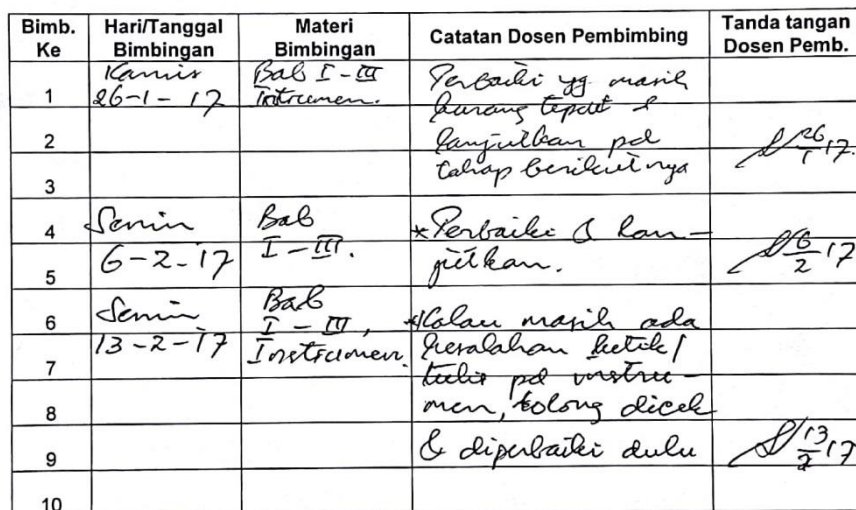 Bimb. Ke Hari/Tanggal Bimbingan Materi Bimbingan Catatan Dosen Pembimbing Tanda tangan Dosen Pemb.
Kamis Bab I - III Perbaiki yg masih
1 26-1-17 Instrumen. kurang tepat &
2 lanjutkan pd 26/1 17.
3 tahap berikutnya
4 Senin Bab * Perbaiki & lan-
5 6-2-17 I - III. jutkan. 6/2 17
6 Senin Bab
I - III, * Kalau masih ada
7 13-2-17 Instrumen. kesalahan ketik/
tulis pd instru-
8 men, tolong dicek
9 & diperbaiki dulu 13/2 17
10